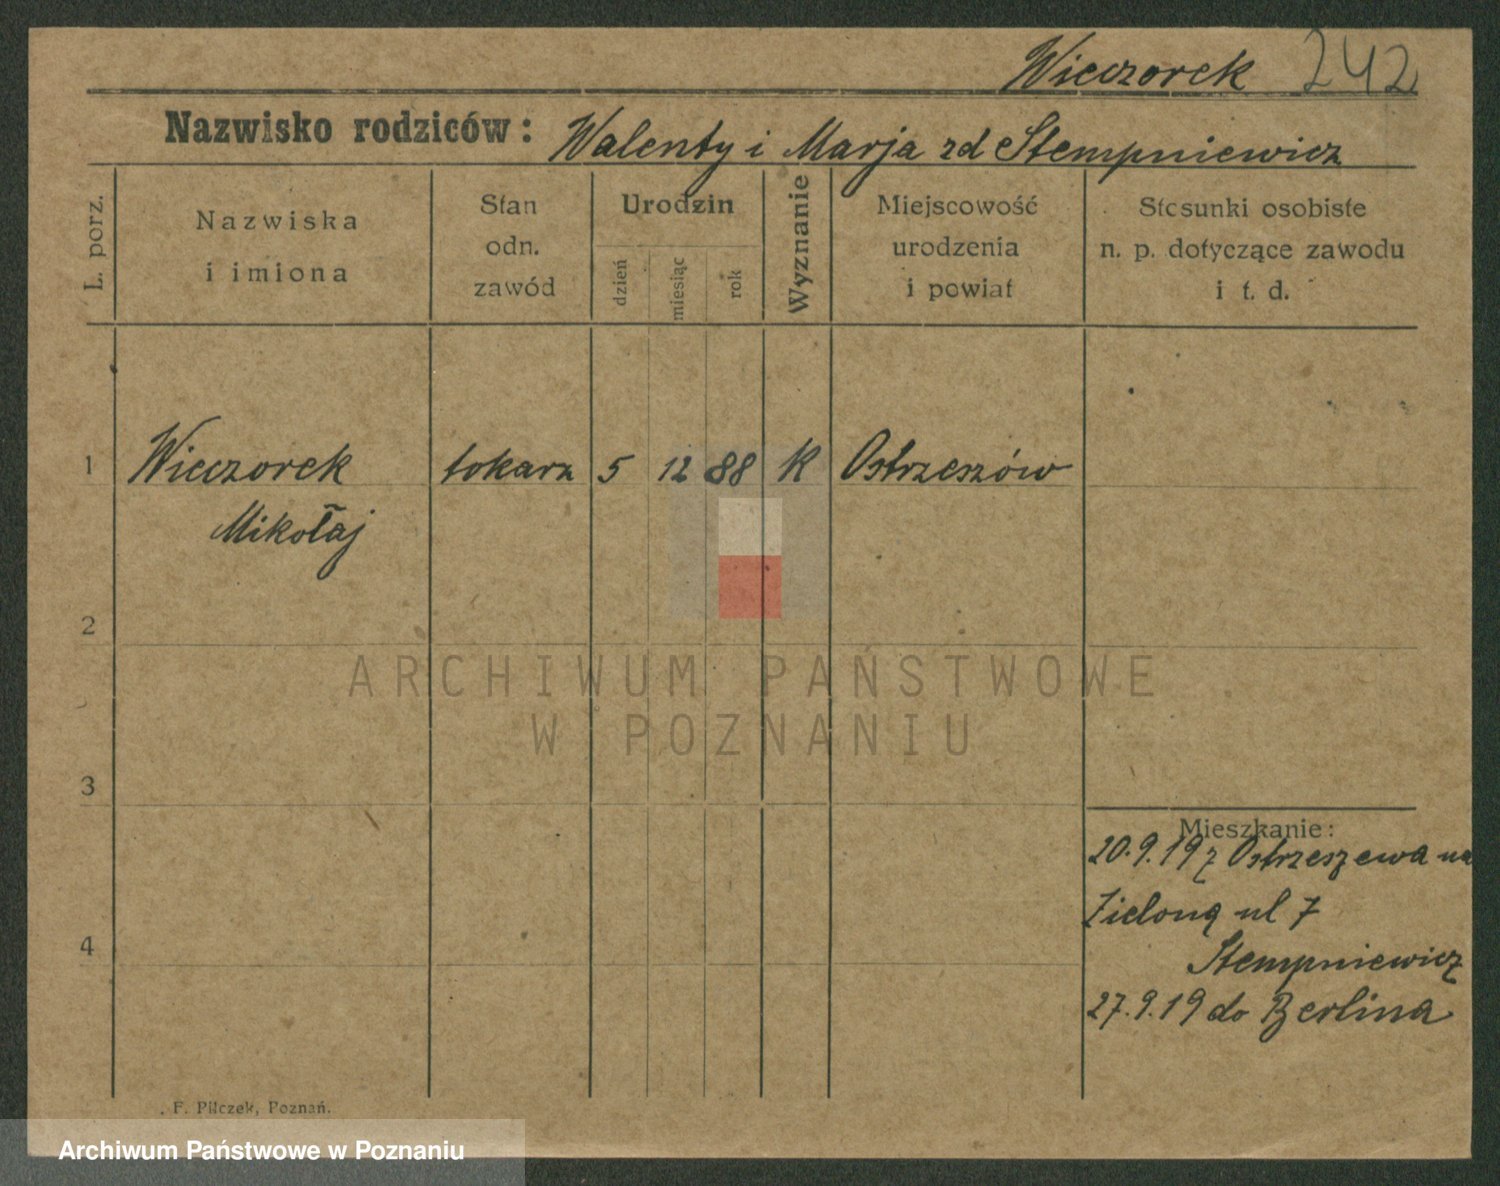 Wieczorek 242
Nazwisko rodziców: Walenty i Marja zd Stempniewicz
L. porz.
Nazwiska
i imiona
Stan
odn.
zawód
Urodzin
dzień
miesiąc
rok
Wyznanie
Miejscowość
urodzenia
i powiat
Stosunki osobiste
n. p. dotyczące zawodu
i t. d.
1 Wieczorek tokarz 5 12 88 K Ostrzeszów
Mikołaj
2
ARCHIWUM PAŃSTWOWE
W POZNANIU
3
Mieszkanie:
20.9.19 z Ostrzeszewa na
Zieloną ul 7
4
Stempniewicz
27.9.19 do Berlina
F. Pilczek, Poznań.
Archiwum Państwowe w Poznaniu